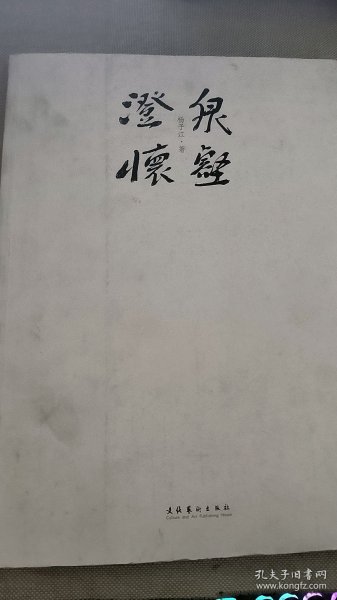 泉壑
澄懷
杨子江·著
文化藝術出版社
Culture and Art Publishing House
孔夫子旧书网
www.kongfz.com